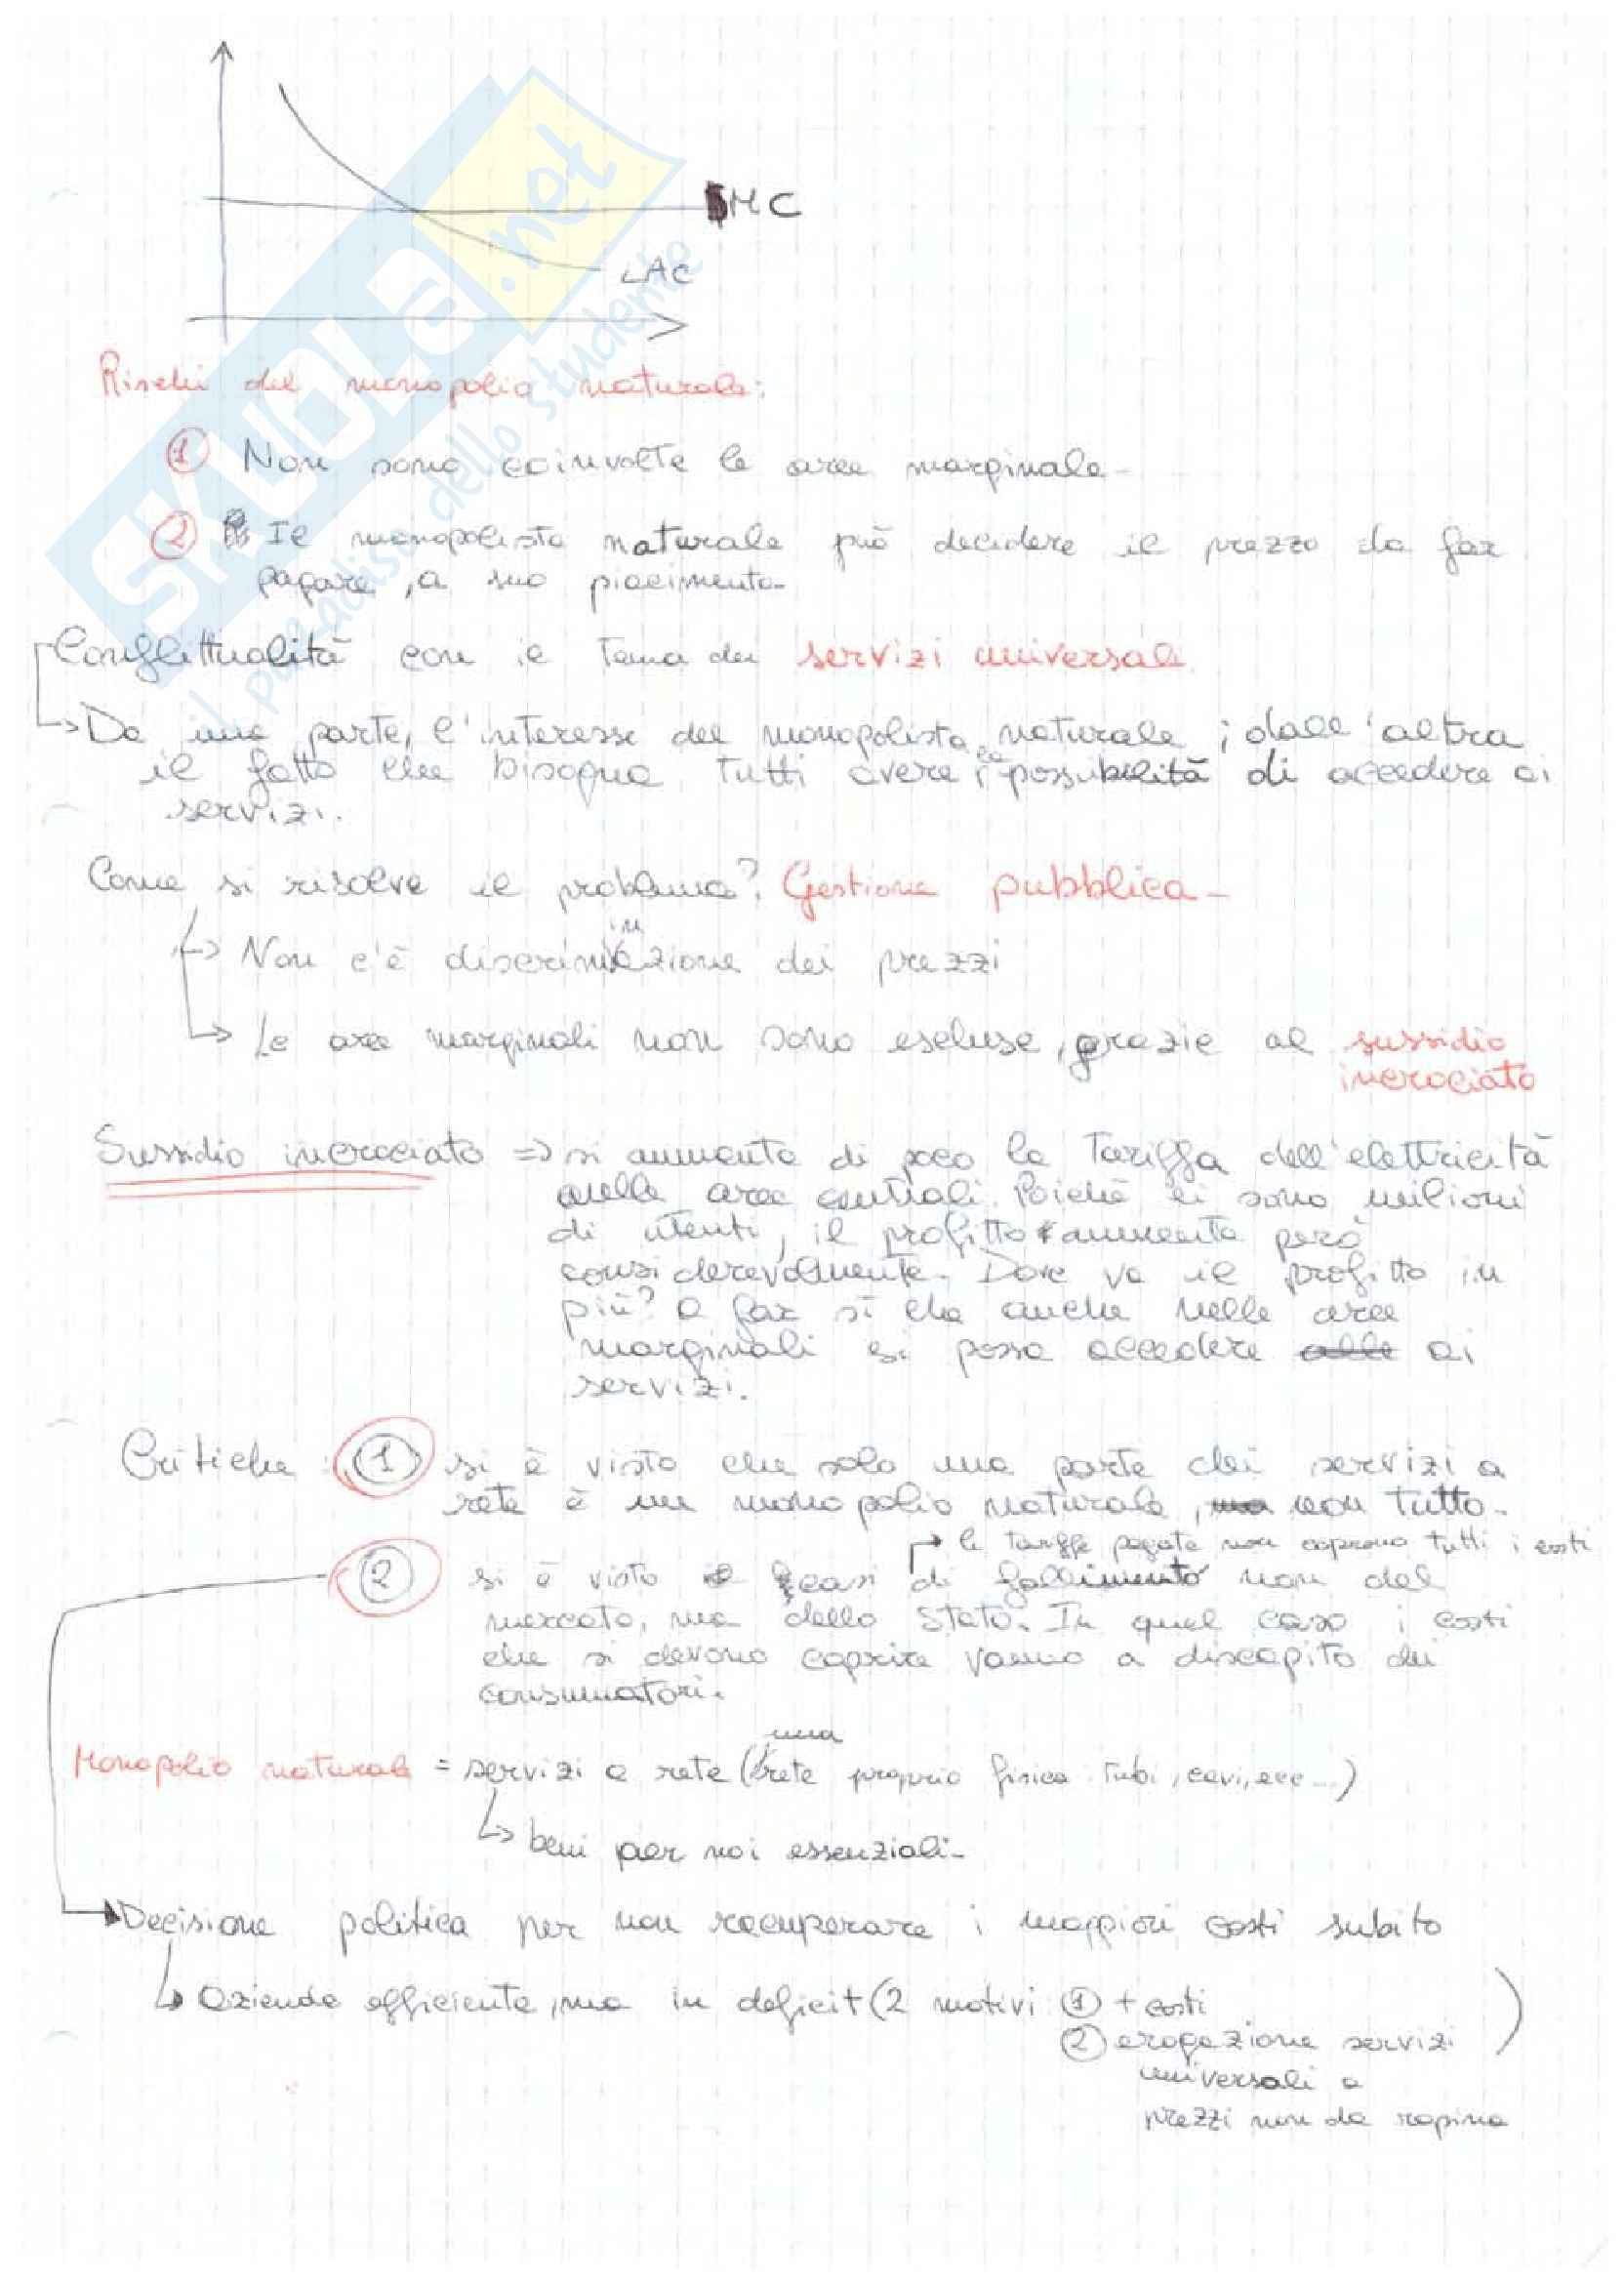 MC
LAC
SKUOLA.net
il paradiso dello studente
Rischi del monopolio naturale:
① Non sono coinvolte le aree marginale
② Il monopolista naturale può decidere il prezzo da far
pagare, a suo piacimento
Conflittualità con il tema dei servizi universali
Da una parte, l'interesse del monopolista naturale; dall'altra
il fatto che bisogna tutti avere la possibilità di accedere ai
servizi.
Come si risolve il problema? Gestione pubblica
Non c'è discriminazione dei prezzi
Le aree marginali non sono escluse, grazie al sussidio
incrociato
Sussidio incrociato => si aumenta di poco la tariffa dell'elettricità
nelle aree centrali. Poiché ci sono milioni
di utenti, il profitto aumenta però
considerevolmente. Dove va il profitto in
più? a far sì che anche nelle aree
marginali si possa accedere ai
servizi.
Critiche: ① si è visto che solo una parte dei servizi a
rete è un monopolio naturale, non tutto.
le tariffe pagate non coprono tutti i costi
② si è visto casi di fallimento non del
mercato, ma dello Stato. In quel caso i costi
che si devono coprire vanno a discapito dei
consumatori.
Monopolio naturale = servizi a rete (una rete proprio fisica: tubi, cavi, ecc...)
beni per noi essenziali
Decisione politica per non recuperare i maggiori costi subito
azienda efficiente, ma in deficit (2 motivi ① + costi
② erogazione servizi
universali a
prezzi non da rapina)